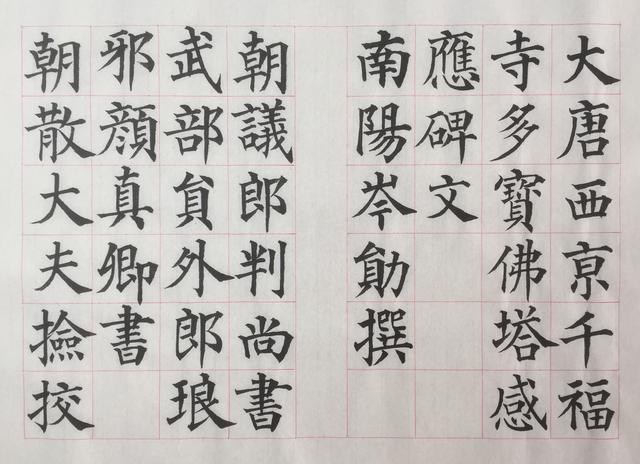 大唐西京千福
寺多寶佛塔感
應碑文
南陽岑勛撰
朝議郎判尚書
武部員外郎琅
邪顏真卿書
朝散大夫撿挍